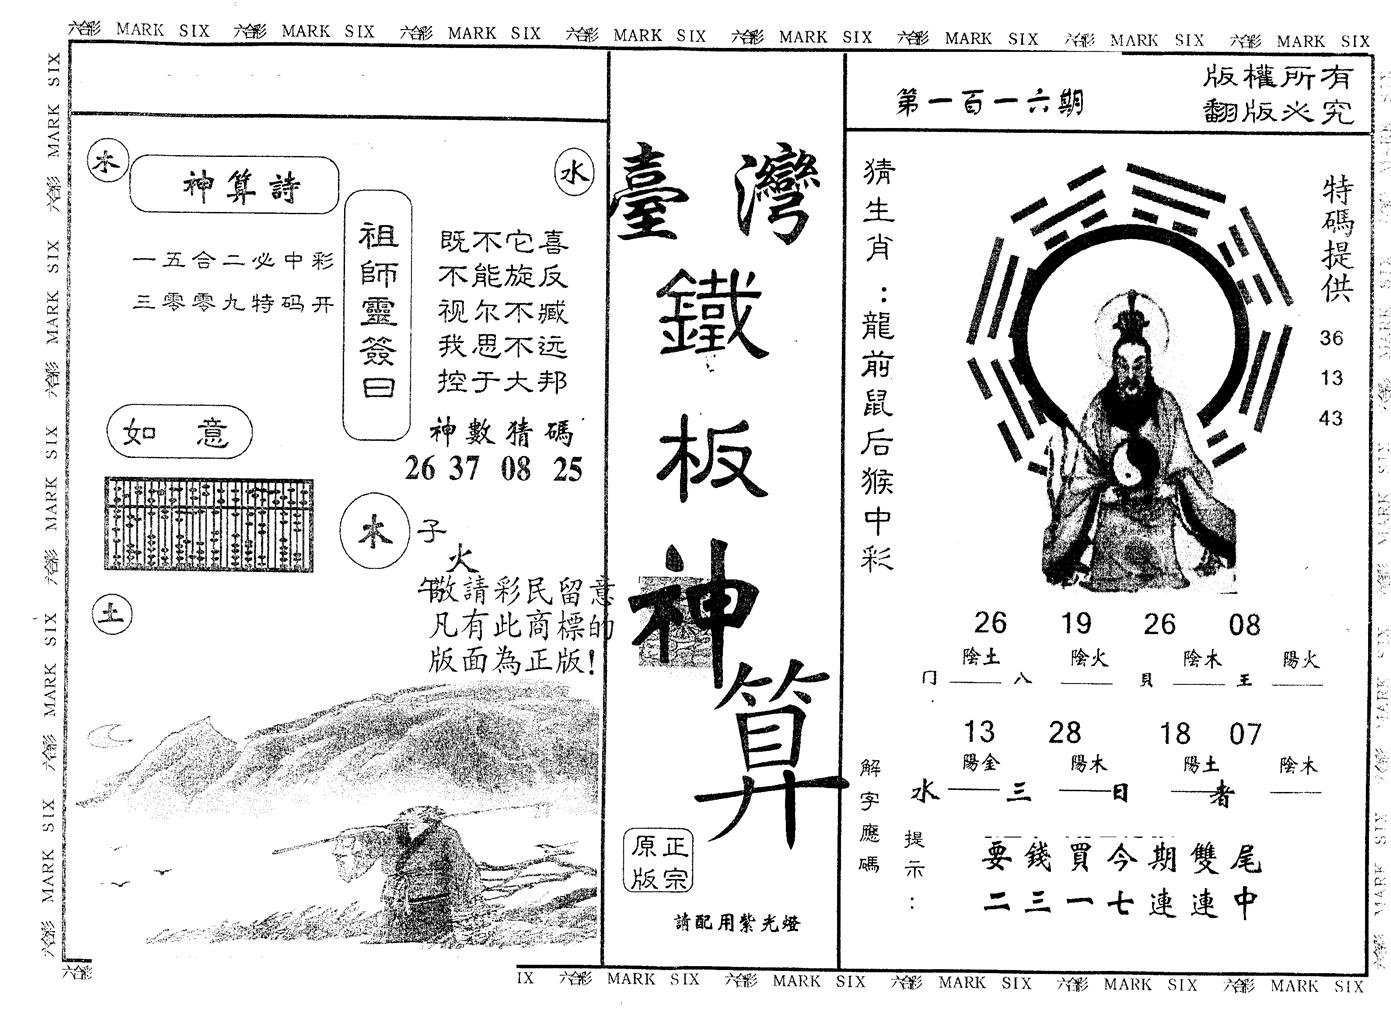 六合彩 MARK SIX 六合彩 MARK SIX 六合彩 MARK SIX 六合彩 MARK SIX 六合彩 MARK SIX 六合彩 MARK SIX 六合彩 MARK SIX 六合彩 MARK SIX
木
神算詩
水
一五合二必中彩
三零零九特码开
祖師靈簽曰
既不它喜
不能旋反
视尔不臧
我思不远
控于大邦
神數猜碼
26 37 08 25
如意
木
子
火
午
土
敬請彩民留意
凡有此商標的
版面為正版!
臺灣
鐵
板
神
算
正宗
原版
請配用紫光燈
第一百一六期
版權所有
翻版必究
猜生肖:龍前鼠后猴中彩
特碼提供
36
13
43
26 19 26 08
陰土 陰火 陰木 陽火
冂 八 貝 王
13 28 18 07
陽金 陽木 陽土 陰木
水 三 日 者
解字應碼
提示:
要錢買今期雙尾
二三一七連連中
六合彩 IX 六合彩 MARK SIX 六合彩 MARK SIX 六合彩 MARK SIX 六合彩 MARK SIX 六合彩 MARK SIX